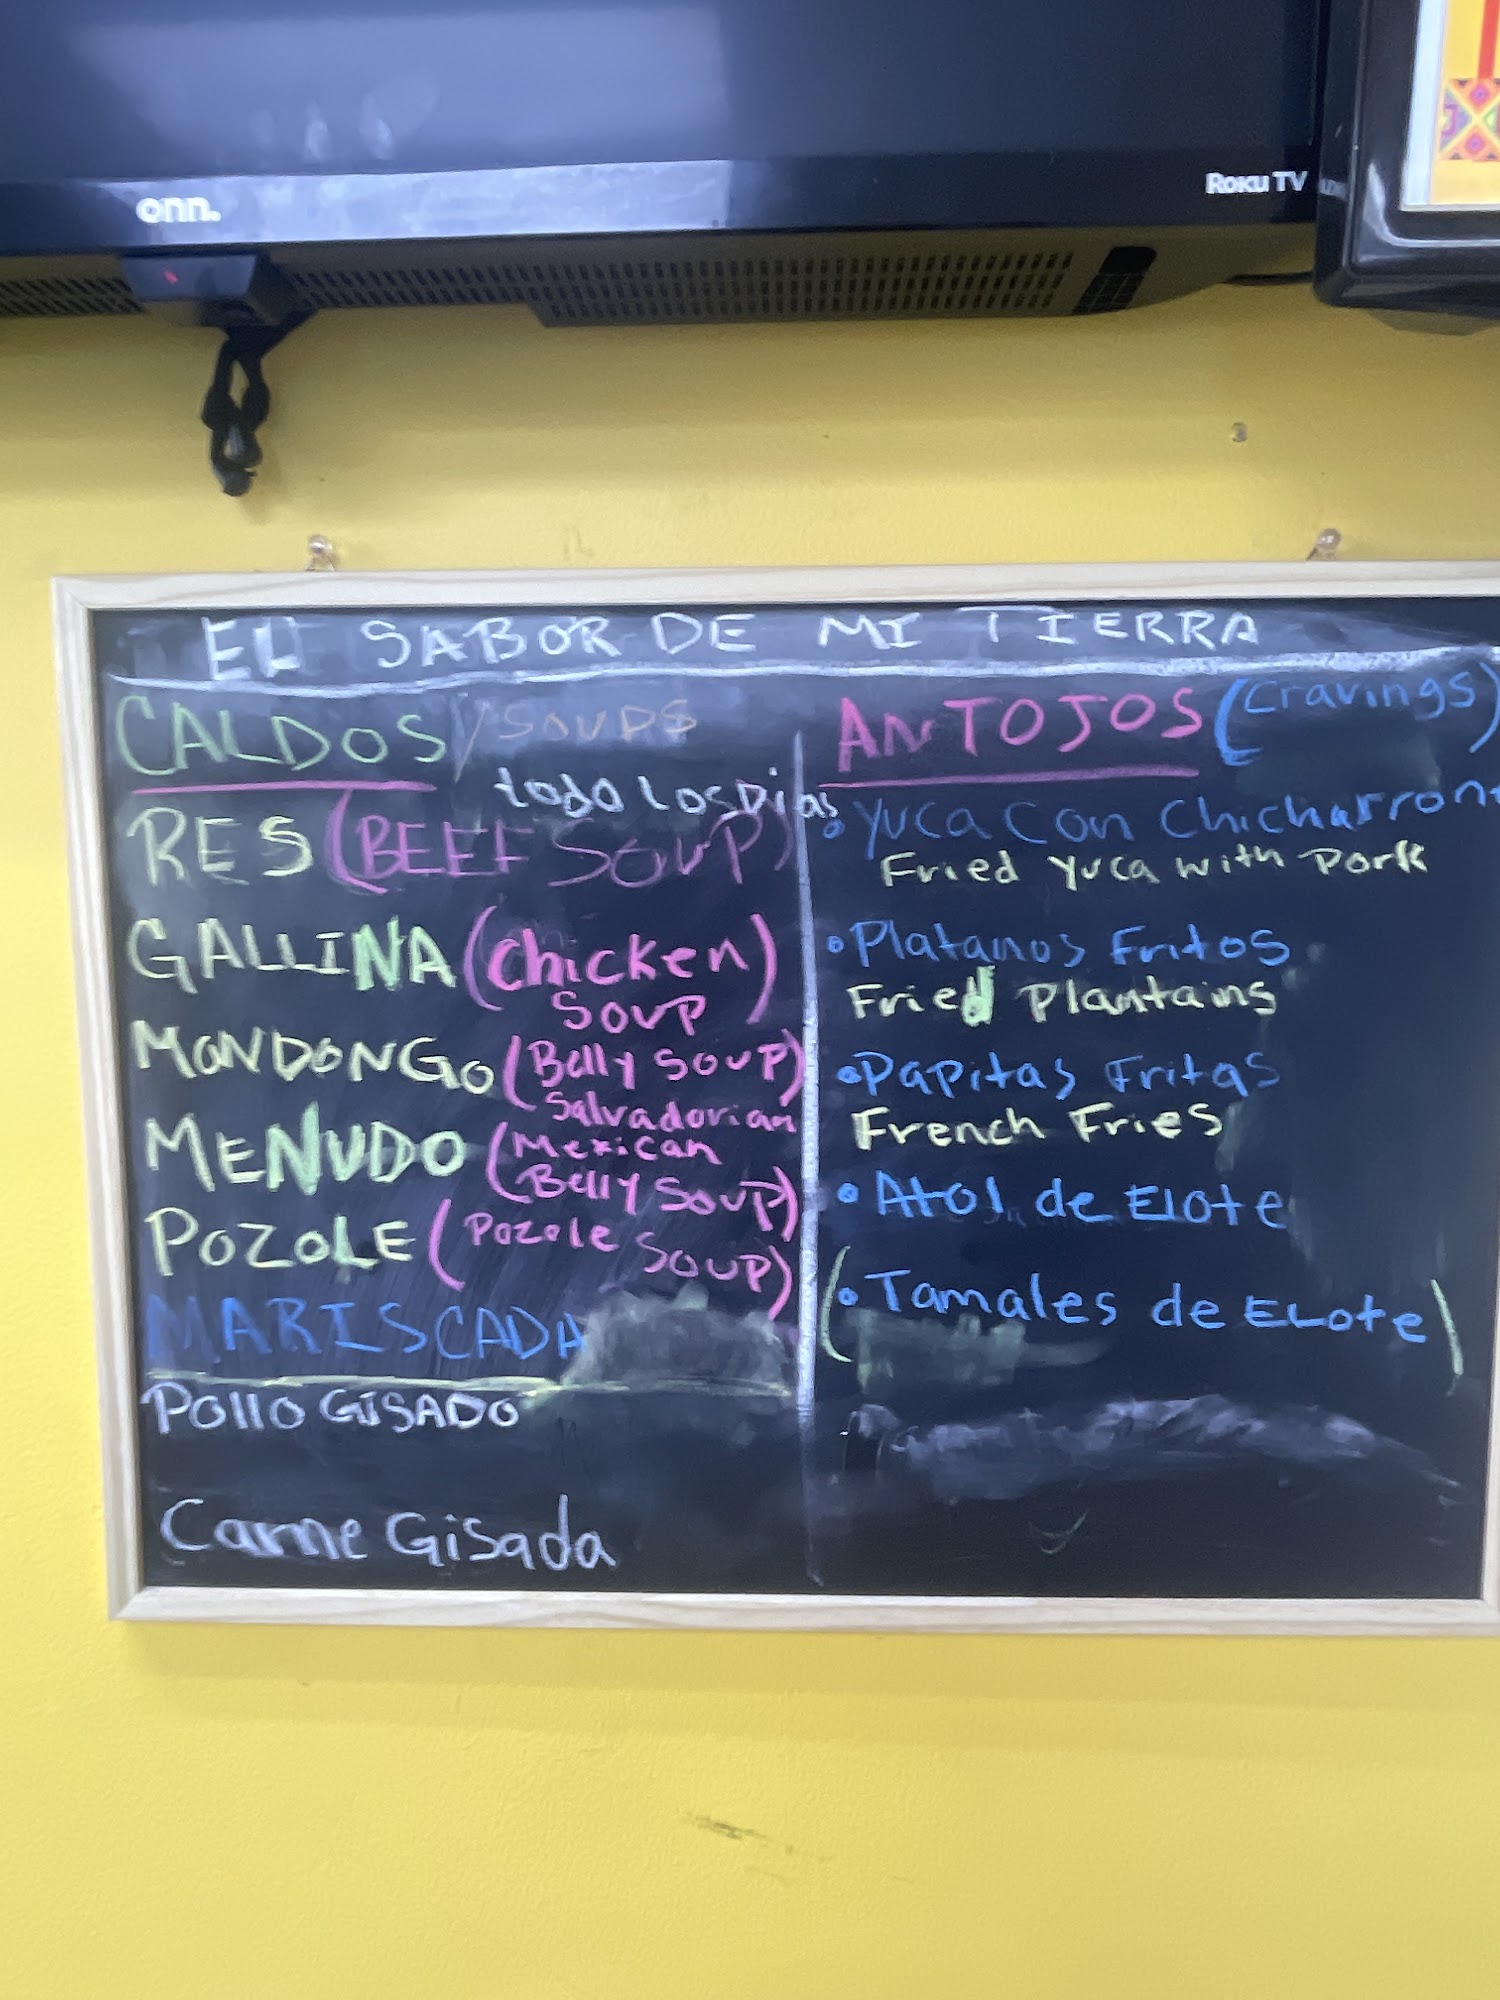 onn.
Roku TV
EL SABOR DE MI TIERRA
CALDOS / SOUPS
todo Los Dias
RES (BEEF SOUP)
GALLINA (Chicken
SOUP)
MONDONGO (Belly SOUP)
Salvadorian
MENUDO (Mexican
Belly SOUP)
POZOLE (Pozole
SOUP)
MARISCADA
Pollo GISADO
Carne Gisada
ANTOJOS (Cravings)
• Yuca Con Chicharron
Fried Yuca with Pork
• Platanos Fritos
Fried Plantains
• Papitas Fritas
French Fries
• Atol de Elote
(• Tamales de ELote)